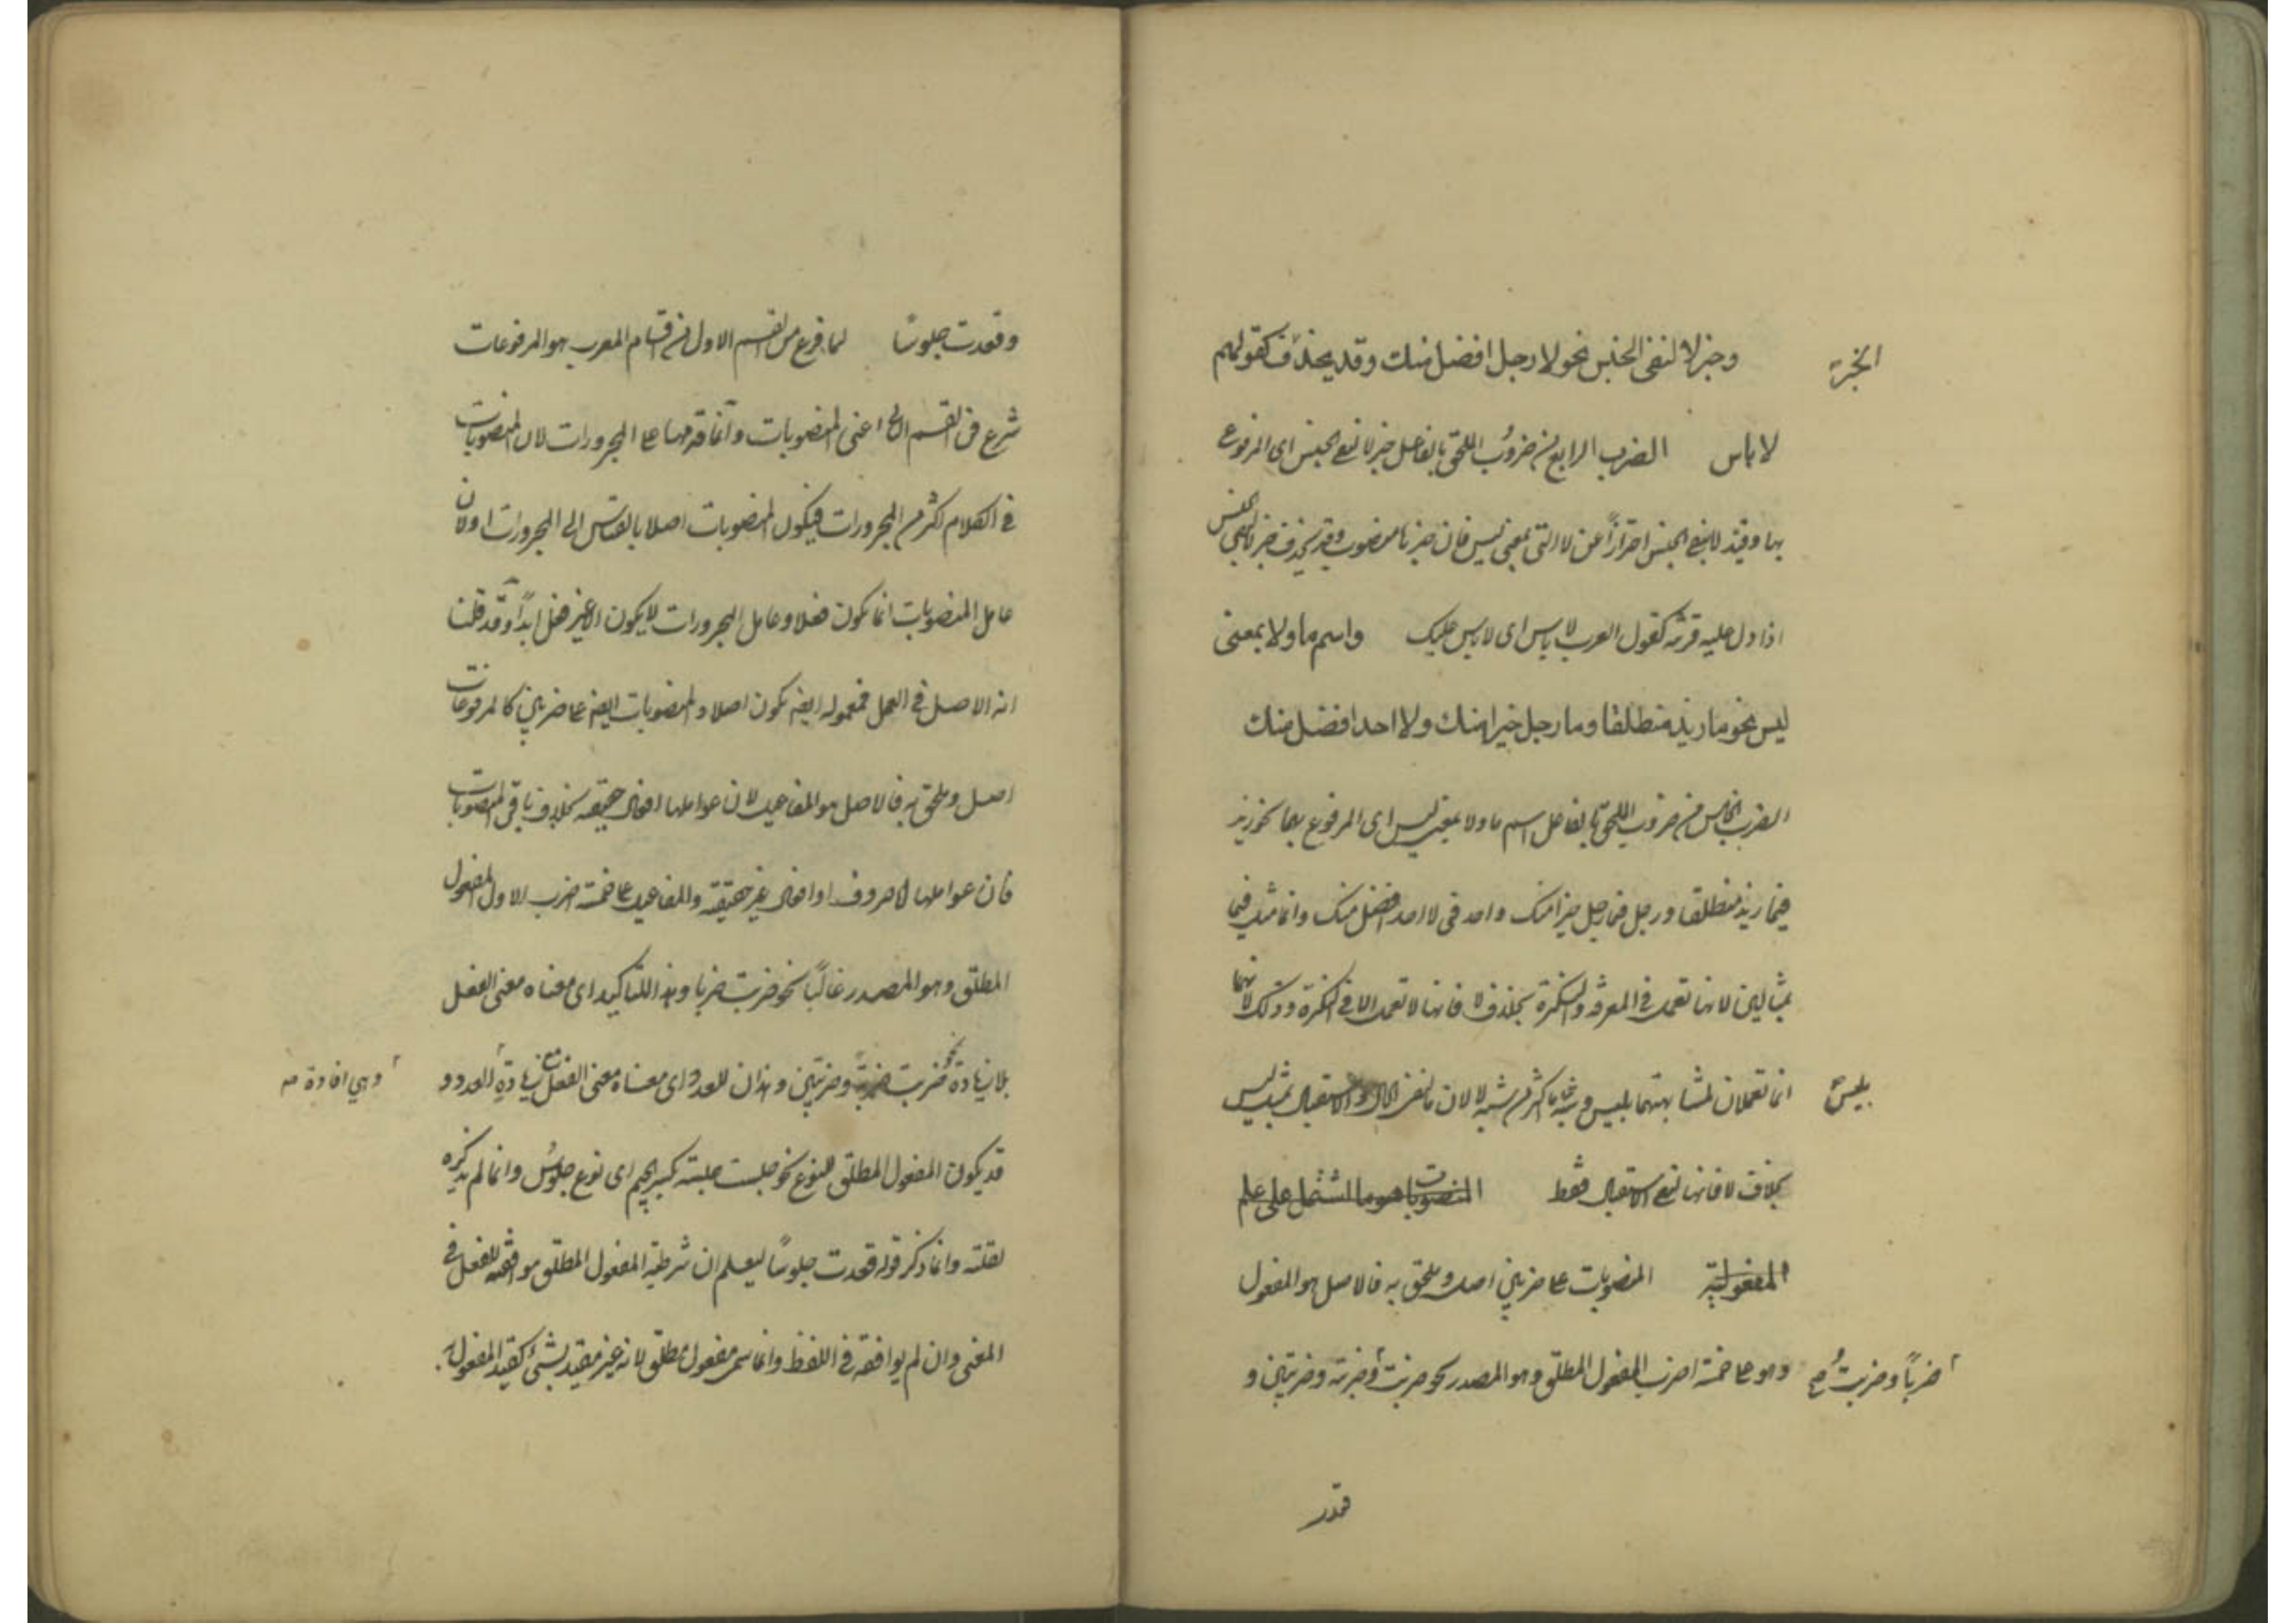 وخبر لا لنفى الجنس نحو لا رجل افضل منك وقد يحذف كقولهم
الخبر
لا باس الضرب الرابع من ضروب الملحق بالفاعل خبر لا لنفى الجنس اى المرفوع
بها وقيد لا بنفى الجنس احترازاً عن لا التى بمعنى ليس فان خبرها منصوب وقد يحذف خبر لا لنفى الجنس
اذا دل عليه قرينه كقول العرب لا باس اى لا باس عليك واسم ما ولا بمعنى
ليس نحو ما زيد منطلقا وما رجل خيرا منك ولا احد افضل منك
الضرب الخامس من ضروب الملحق بالفاعل اسم ما ولا بمعنى ليس اى المرفوع بهما نحو زيد
فى ما زيد منطلقا ورجل فى ما رجل خيرا منك واحد فى لا احد افضل منك وانما مثل فى ما
بمثالين لانها تعمل فى المعرفة والنكرة بخلاف لا فانها لا تعمل الا فى النكرة وذلك لانهما
انما تعملان لمشابهتهما بليس وشبه ما اكثر من شبه لا لان ما لنفى الحال كليس
بليس
بخلاف لا فانها لنفى الاستقبال فقط المنصوبات هو ما اشتمل على علم
المفعولية المنصوبات على ضربين اصل وملحق به فالاصل هو المفعول
وهو على خمسة اضرب المفعول المطلق وهو المصدر نحو ضربت وضربته وضربتين و
ضرباً وضربت صح
قدر
وقعدت جلوسًا لما فرغ من القسم الاول من اقسام المعرب هو المرفوعات
شرع فى القسم الثانى اعنى المنصوبات وانما قدمها على المجرورات لان المنصوبات
فى الكلام اكثر من المجرورات فيكون المنصوبات اصلا بالقياس الى المجرورات او لان
عامل المنصوبات انما يكون فعلا وعامل المجرورات لا يكون الا غير فعل ابداً وقد قلنا
انه الاصل فى العمل فمعموله ايضا يكون اصلا والمنصوبات ايضا على ضربين كالمرفوعات
اصل وملحق به فالاصل هو المفاعيل لان عواملها افعال حقيقة بخلاف باقى المنصوبات
فان عواملها اما حروف او افعال غير حقيقة والمفاعيل على خمسة اضرب الاول المفعول
المطلق وهو المصدر غالباً نحو ضربت ضربا وهذا للتاكيد اى معناه معنى الفعل
بلا زيادة نحو ضربت ضربة وضربتين وهذان للعدد اى معناه معنى الفعل مع زيادة العدد و
وهي افادة
قد يكون المفعول المطلق للنوع نحو جلست جلسة بكسر الجيم اى نوع جلوس وانما لم يذكره
لقلته وانما ذكر قوله قعدت جلوسًا ليعلم ان شرطية المفعول المطلق موافقته للفعل فى
المعنى وان لم يوافقه فى اللفظ وانما سمى مفعول مطلق لانه غير مقيد بشئ كقيد المفعول به